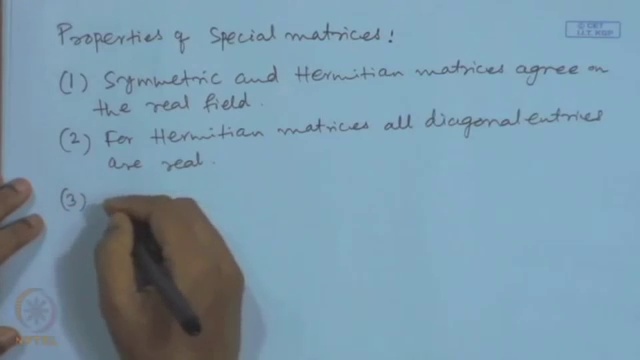 Properties of Special matrices!
(1) Symmetric and Hermitian matrices agree on
the real field.
(2) For Hermitian matrices all diagonal entries
are real.
(3)
© CET
I.I.T. KGP
NPTEL